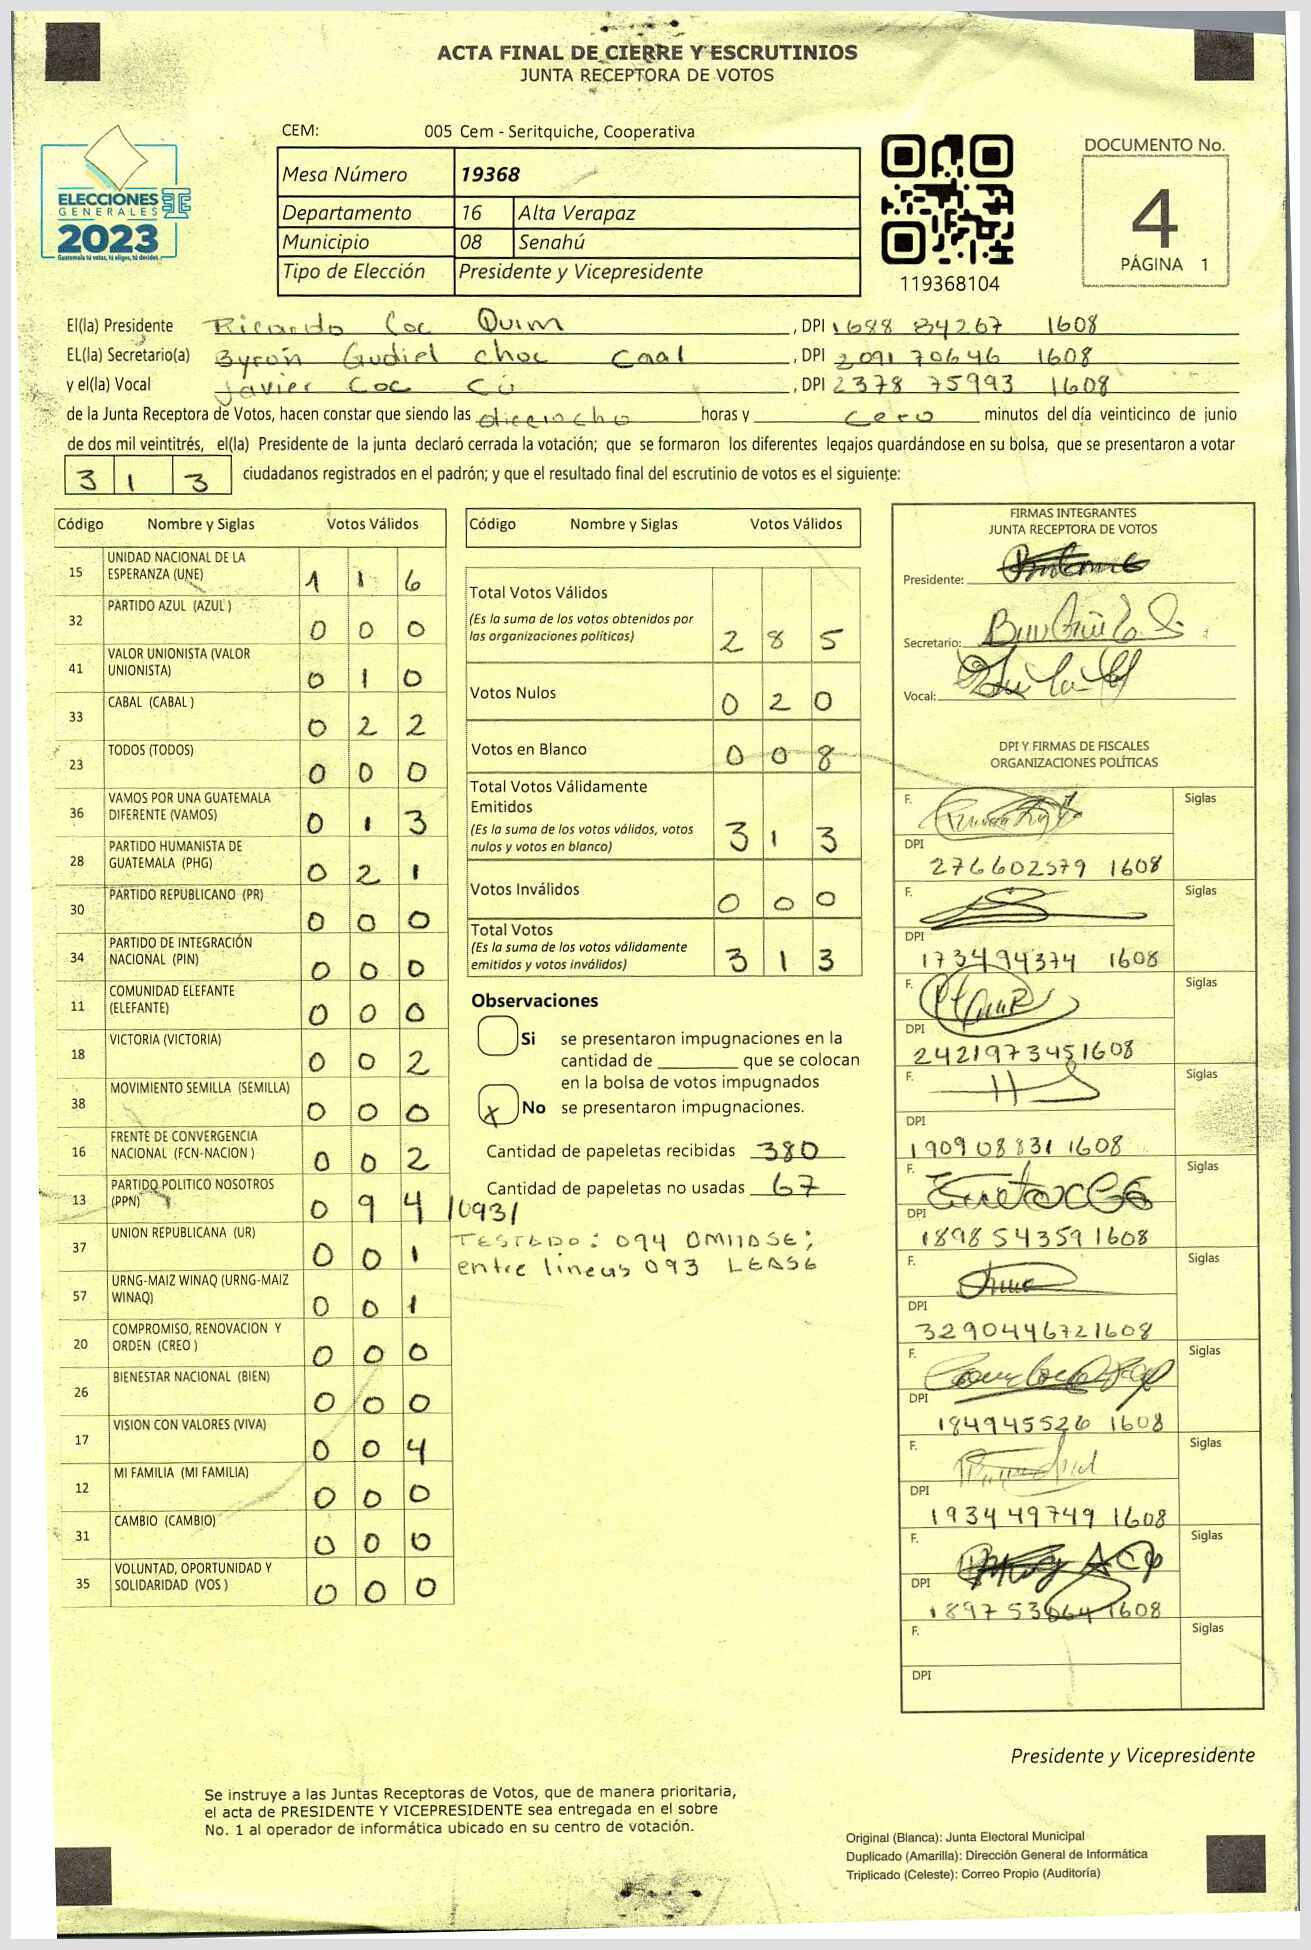 ACTA FINAL DE CIERRE Y ESCRUTINIOS
JUNTA RECEPTORA DE VOTOS
CEM: 005 Cem - Seritquiche, Cooperativa
Mesa Número 19368
Departamento 16 Alta Verapaz
Municipio 08 Senahú
Tipo de Elección Presidente y Vicepresidente
ELECCIONES
GENERALES
2023
Guatemala tú votas, tú eliges, tú decides.
119368104
DOCUMENTO No.
4
PÁGINA 1
El(la) Presidente Ricardo Coc Quim , DPI 1688 84267 1608
EL(la) Secretario(a) Byron Gudiel Choc Caal , DPI 2091 70646 1608
y el(la) Vocal Javier Coc Cú , DPI 2378 75993 1608
de la Junta Receptora de Votos, hacen constar que siendo las dieciocho horas y cero minutos del día veinticinco de junio
de dos mil veintitrés, el(la) Presidente de la junta declaró cerrada la votación; que se formaron los diferentes legajos guardándose en su bolsa, que se presentaron a votar
3 1 3 ciudadanos registrados en el padrón; y que el resultado final del escrutinio de votos es el siguiente:
Código Nombre y Siglas Votos Válidos
15 UNIDAD NACIONAL DE LA ESPERANZA (UNE) 1 1 6
32 PARTIDO AZUL (AZUL ) 0 0 0
41 VALOR UNIONISTA (VALOR UNIONISTA) 0 1 0
33 CABAL (CABAL ) 0 2 2
23 TODOS (TODOS) 0 0 0
36 VAMOS POR UNA GUATEMALA DIFERENTE (VAMOS) 0 1 3
28 PARTIDO HUMANISTA DE GUATEMALA (PHG) 0 2 1
30 PARTIDO REPUBLICANO (PR) 0 0 0
34 PARTIDO DE INTEGRACIÓN NACIONAL (PIN) 0 0 0
11 COMUNIDAD ELEFANTE (ELEFANTE) 0 0 0
18 VICTORIA (VICTORIA) 0 0 2
38 MOVIMIENTO SEMILLA (SEMILLA) 0 0 0
16 FRENTE DE CONVERGENCIA NACIONAL (FCN-NACION ) 0 0 2
13 PARTIDO POLITICO NOSOTROS (PPN) 0 9 4 /093/
37 UNION REPUBLICANA (UR) 0 0 1
57 URNG-MAIZ WINAQ (URNG-MAIZ WINAQ) 0 0 1
20 COMPROMISO, RENOVACION Y ORDEN (CREO ) 0 0 0
26 BIENESTAR NACIONAL (BIEN) 0 0 0
17 VISION CON VALORES (VIVA) 0 0 4
12 MI FAMILIA (MI FAMILIA) 0 0 0
31 CAMBIO (CAMBIO) 0 0 0
35 VOLUNTAD, OPORTUNIDAD Y SOLIDARIDAD (VOS ) 0 0 0
Código Nombre y Siglas Votos Válidos
Total Votos Válidos 2 8 5
(Es la suma de los votos obtenidos por
las organizaciones políticas)
Votos Nulos 0 2 0
Votos en Blanco 0 0 8
Total Votos Válidamente
Emitidos 3 1 3
(Es la suma de los votos válidos, votos
nulos y votos en blanco)
Votos Inválidos 0 0 0
Total Votos 3 1 3
(Es la suma de los votos válidamente
emitidos y votos inválidos)
Observaciones
Si se presentaron impugnaciones en la
cantidad de ________ que se colocan
en la bolsa de votos impugnados
X No se presentaron impugnaciones.
Cantidad de papeletas recibidas 380
Cantidad de papeletas no usadas 67
TESTADO: 094 OMITASE;
entre lineas 093 LEASE
FIRMAS INTEGRANTES
JUNTA RECEPTORA DE VOTOS
Presidente:
Secretario:
Vocal:
DPI Y FIRMAS DE FISCALES
ORGANIZACIONES POLÍTICAS
F. Siglas
DPI 276602579 1608
F. Siglas
DPI 173494374 1608
F. Siglas
DPI 2421973451608
F. Siglas
DPI 190908831 1608
F. Siglas
DPI 189854359 1608
F. Siglas
DPI 3290446721608
F. Siglas
DPI 184945526 1608
F. Siglas
DPI 193449749 1608
F. Siglas
DPI 189753064 1608
F. Siglas
DPI
Presidente y Vicepresidente
Se instruye a las Juntas Receptoras de Votos, que de manera prioritaria,
el acta de PRESIDENTE Y VICEPRESIDENTE sea entregada en el sobre
No. 1 al operador de informática ubicado en su centro de votación.
Original (Blanca): Junta Electoral Municipal
Duplicado (Amarilla): Dirección General de Informática
Triplicado (Celeste): Correo Propio (Auditoría)